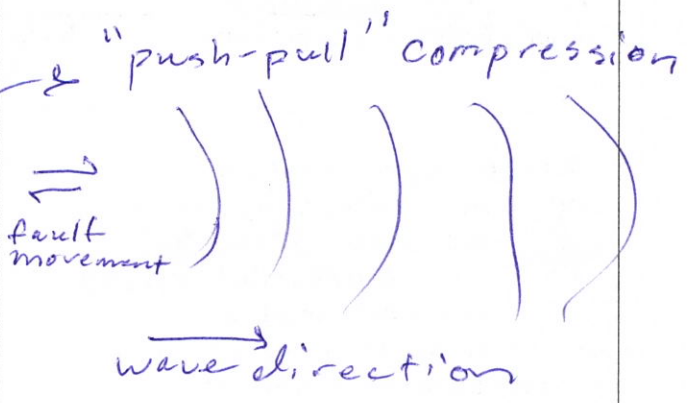 "push-pull" compression
fault
movement
wave direction